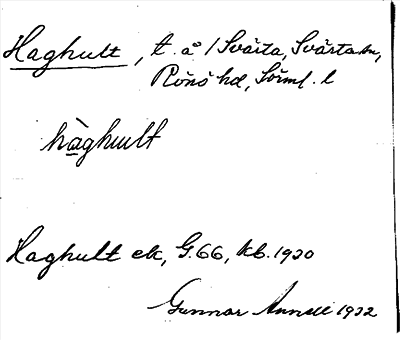 Haghult, t. å / Svärta, Svärta sn,
Rönö hd, Sörml. l
hàghult
Haghult ek, G.66, kb. 1920
Gunnar 1922